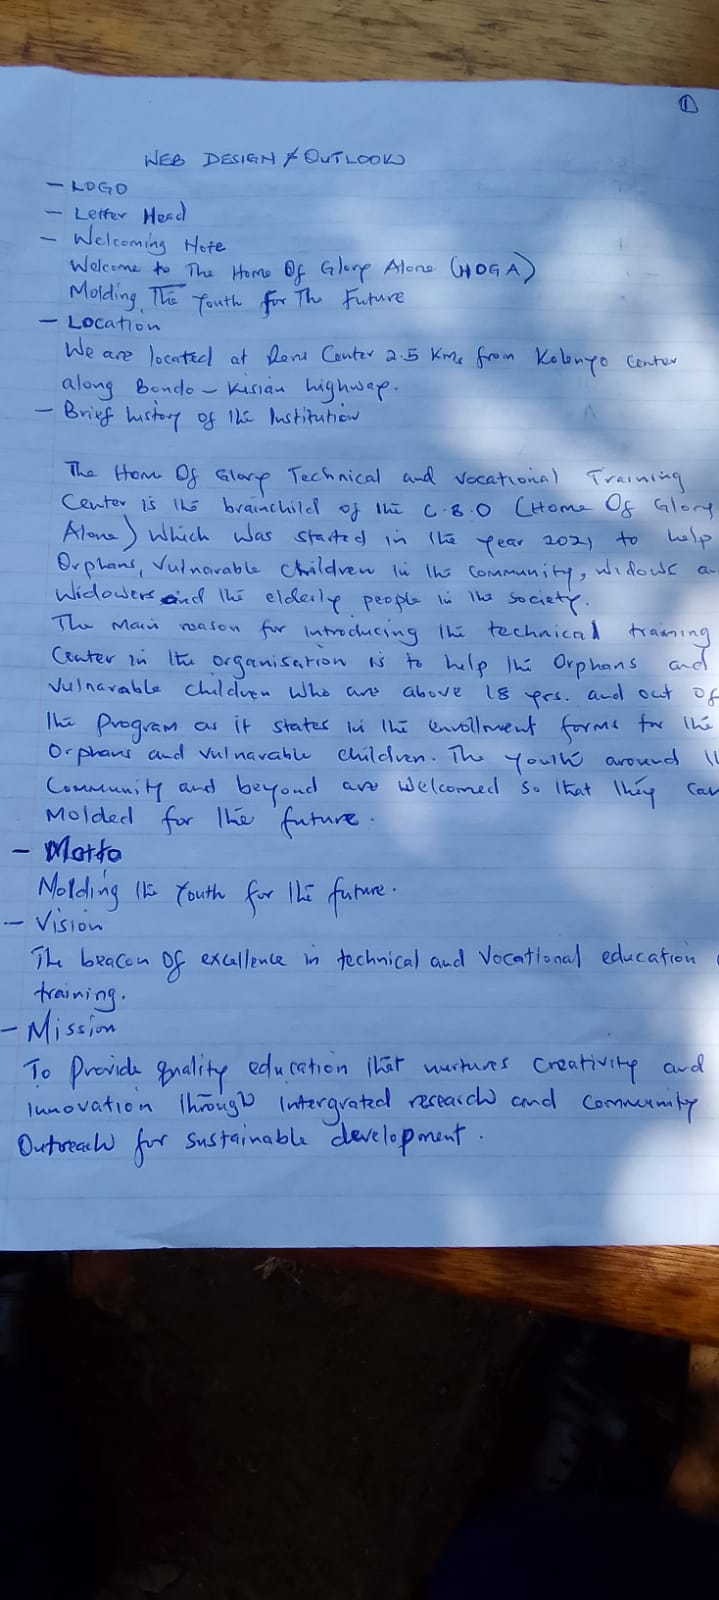 1
WEB DESIGN & OUTLOOK
- LOGO
- Letter Head
- Welcoming Note
Welcome to The Home Of Glory Alone (HOGA)
Molding The Youth for The Future
- Location
We are located at Center 2.5 Kms from Kolenyo Center
along Bondo - Kisian highway.
- Brief history of the Institution
The Home Of Glory Technical and Vocational Training
Center is the brainchild of the C.B.O (Home Of Glory
Alone) Which was started in the year 2021 to help
Orphans, Vulnarable Children in the community, widows
Widowers and the elderly people in the society.
The Main reason for introducing the technical training
Center in the organisation is to help the Orphans and
Vulnarable children who are above 18 yrs. and out of
the program as it states in the enrollment forms for the
Orphans and vulnarable children. The youth around
Community and beyond are welcomed so that they can
Molded for the future.
- Motto
Molding the Youth for the future.
- Vision
The beacon of excellence in technical and Vocational education
training.
- Mission
To Provide quality education that nurtures creativity and
innovation through intergrated research and community
Outreach for sustainable development.